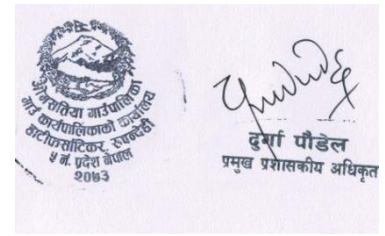 ओमसतिया गाउँपालिका
गाउँ कार्यपालिकाको कार्यालय
हाटीफर्साटिकर, रुपन्देही
५ नं. प्रदेश नेपाल
२०७३
दुर्गा पौडेल
प्रमुख प्रशासकीय अधिकृत